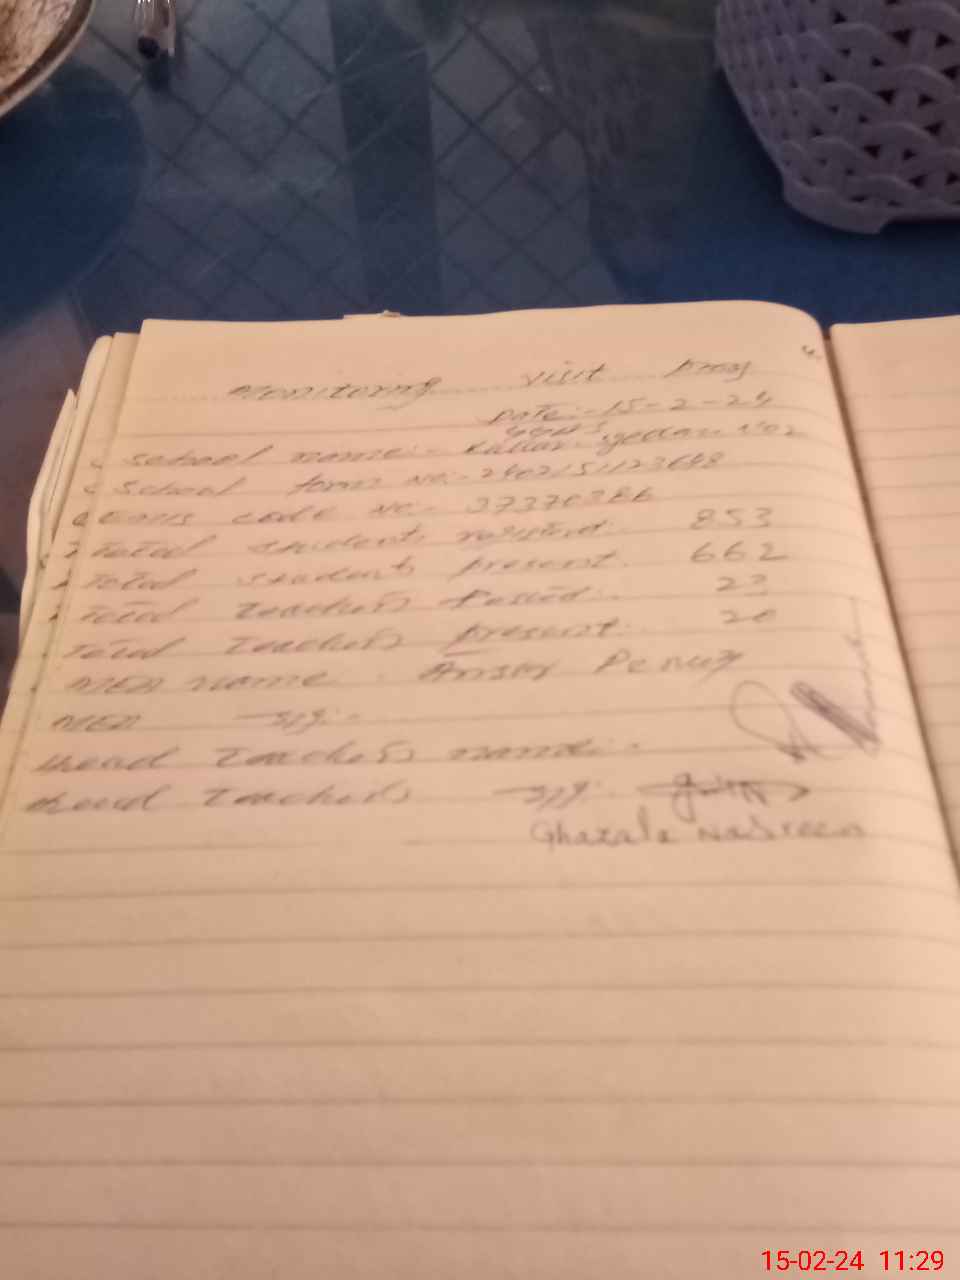 Monitoring visit
Date:- 15-2-24
School name:- Kallar syedan No 2
School form No:- 2402151123648
Emis code No:- 37370366
Total students 853
Total students present: 662
Total Teachers Posted:- 23
Total Teachers present: 20
MEA name:
MEA sig:-
Head Teacher's name:-
Head Teacher's sig:
Ghazala Nasreen
15-02-24 11:29